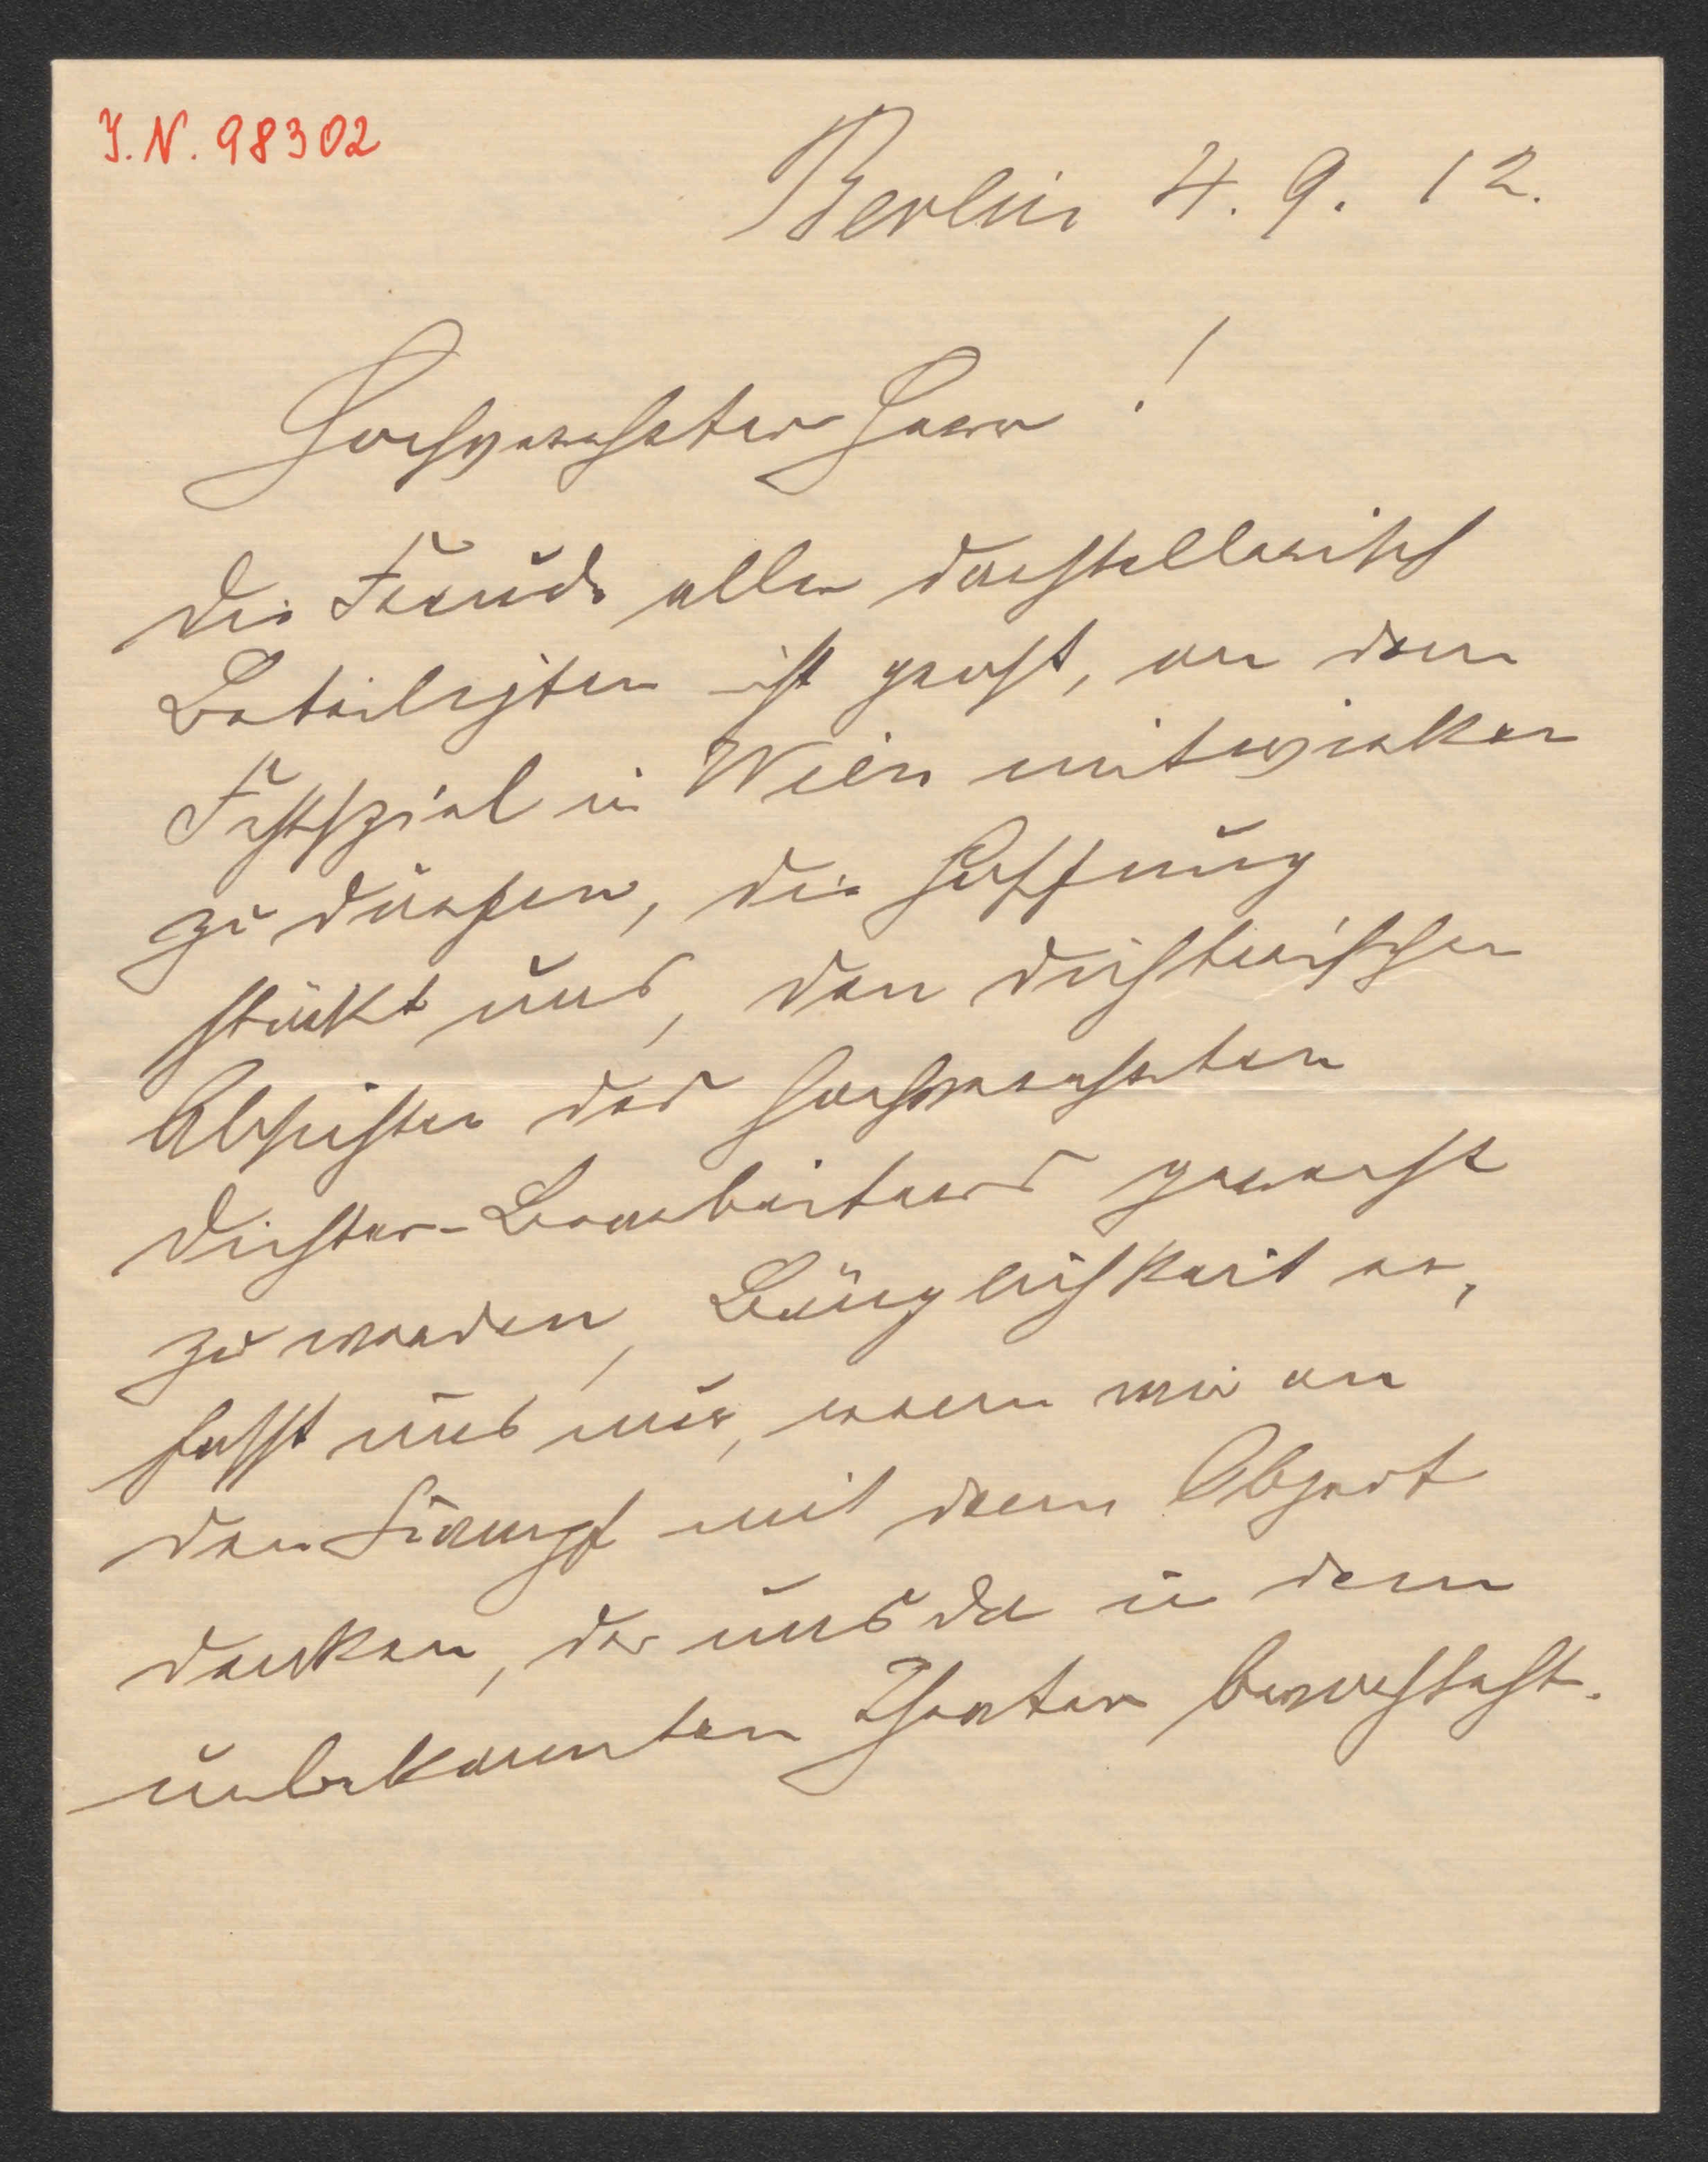 J. N. 98302
Berlin 4. 9. 12.
Hochverehrter Herr!
Die Freude aller darstellerisch
Beteiligten ist groß, an dem
Festspiel in Wien mitwirken
zu dürfen, die Hoffnung
stärkt uns, den dichterischen
Absichten des hochverehrten
Dichter-Bearbeiters gerecht
zu werden, Bänglichkeit er-
fasst uns nur, wenn wir an
den Kampf mit dem Object
denken, der uns da in dem
unbekannten Theater bevorsteht.